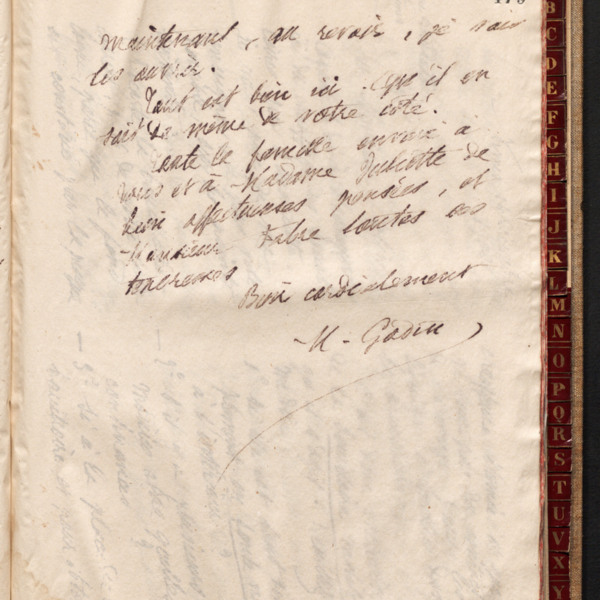 maintenant, au revoir, je vais
les ouvrir.
Tout est bien ici. Qu'il en
soit de même de votre côté.
Toute la famille envoie à
vous et à Madame de
bien affectueuses pensées, et
Monsieur Fabre toutes ses
tendresses
Bien cordialement
M. Godin
B
C
D
E
F
G
H
I
J
K
L
M
N
O
P
Q
R
S
T
U
V
X
Y